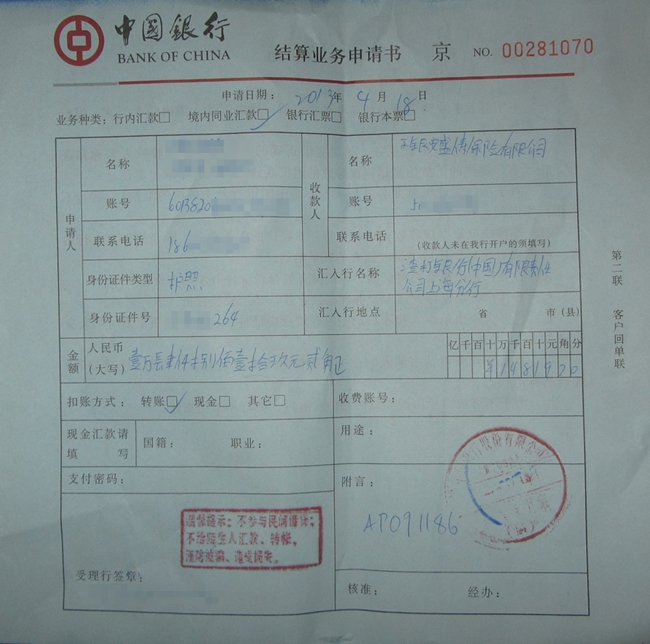 中国银行
BANK OF CHINA
结算业务申请书 京 NO. 00281070
申请日期: 2013年 4月 18日
业务种类: 行内汇款□ 境内同业汇款□ 银行汇票□ 银行本票□
申请人
名称
账号 6013820
联系电话 186
身份证件类型 护照
身份证件号 264
收款人
名称 保险有限公司
账号
联系电话
(收款人未在我行开户的须填写)
汇入行名称 渣打银行(中国)有限责任
公司上海分行
汇入行地点 省 市(县)
金额 人民币
(大写)
亿千百十万千百十元角分
扣账方式: 转账□ 现金□ 其它□
收费账号:
现金汇款请
填写
国籍: 职业:
用途:
支付密码:
附言:
AP091186
温馨提示: 不参与民间借贷;
不给陌生人汇款、转账。
受理行签章:
核准: 经办:
第二联 客户回单联
股份有限公司